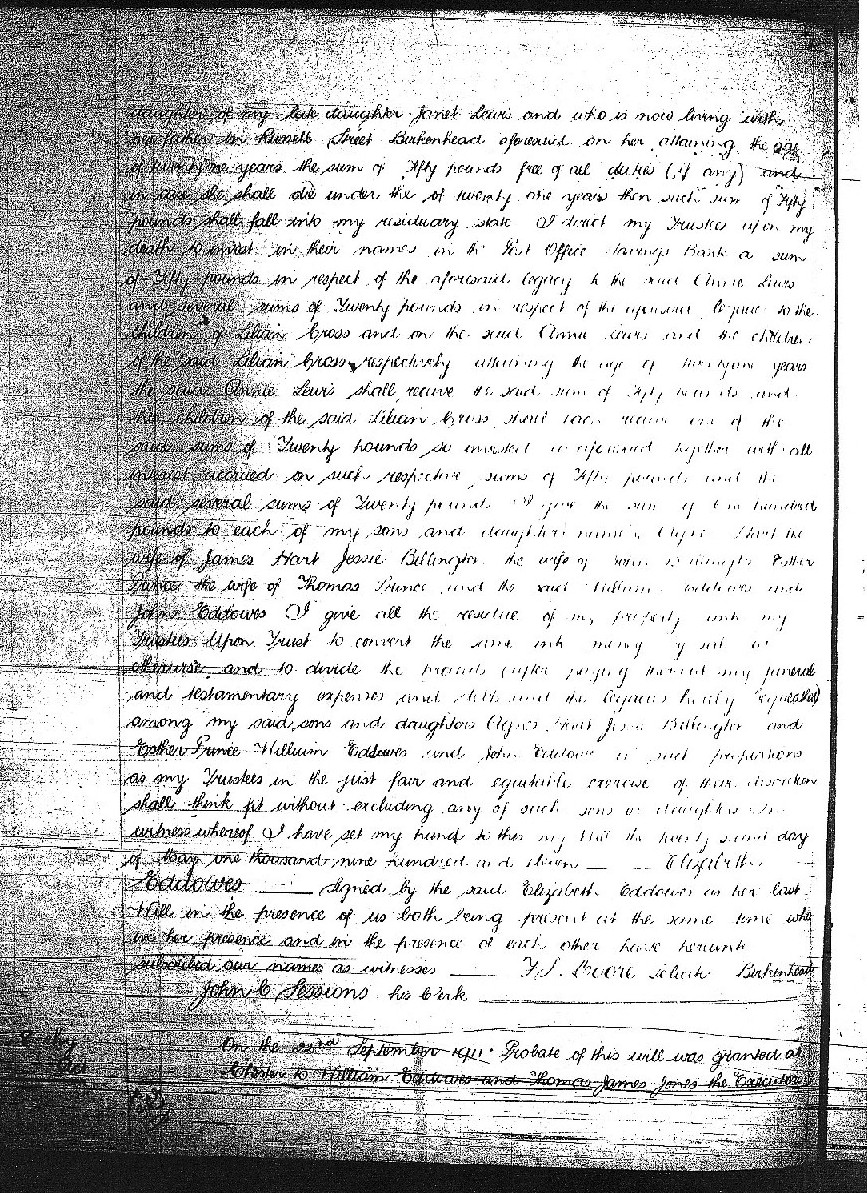 daughter of my late daughter Janet Lewis and who is now living with
her father in Russell Street Birkenhead aforesaid on her attaining the age
of twenty one years the sum of Fifty pounds free of all duties (if any) and
in case she shall die under the of twenty one years then such sum of Fifty
pounds shall fall into my residuary state I direct my Trustees upon my
death to invest in their names in the Post Office Savings Bank a sum
of Fifty pounds in respect of the aforesaid legacy to the said Annie Lewis
and several sums of Twenty pounds in respect of the aforesaid legacies to the
children of Lilian Gross and on the said Annie Lewis and the children
of the said Lilian Gross respectively attaining the age of twenty one years
the said Annie Lewis shall receive the said sum of Fifty pounds and
the children of the said Lilian Gross shall each receive one of the
said sums of Twenty pounds so invested as aforesaid together with all
interest accrued on such respective sums of Fifty pounds and the
said several sums of Twenty pounds I give the sum of One hundred
pounds to each of my sons and daughters namely Agnes Hart the
wife of James Hart Jessie Billington the wife of Billington Esther
Prince the wife of Thomas Prince and the said William Eddowes and
John Eddowes I give all the residue of my property unto my
Trustees Upon Trust to convert the same into money by sale or
otherwise and to divide the proceeds (after paying thereout my funeral
and testamentary expenses and debts and the legacies hereby bequeathed)
among my said sons and daughters Agnes Hart Jessie Billington and
Esther Prince William Eddowes and John Eddowes in such proportions
as my Trustees in the just fair and equitable exercise of their discretion
shall think fit without excluding any of such sons or daughters In
witness whereof I have set my hand to this my Will the twenty second day
of May one thousand nine hundred and eleven — Elizabeth
Eddowes — Signed by the said Elizabeth Eddowes as her last
Will in the presence of us both being present at the same time who
in her presence and in the presence of each other have hereunto
subscribed our names as witnesses — Moore Solicitor Birkenhead
John C Sessions his Clerk
On the 22nd September 1911 Probate of this will was granted at
Chester to William Eddowes and Thomas James Jones the Executors